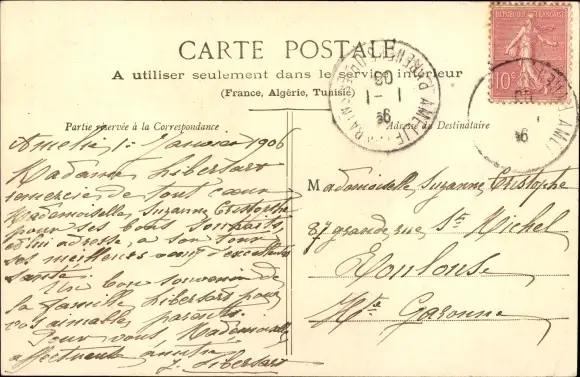 CARTE POSTALE
A utiliser seulement dans le service intérieur
(France, Algérie, Tunisie)
Partie réservée à la Correspondance
Adresse du Destinataire
REPUBLIQUE FRANÇAISE
10c
AMELIE
Amelie 1 Janvier 1906
Madame Libertart
remercie de tout cœur
Mademoiselle Suzanne Cristophe
pour ses bons souhaits
et lui adresse, a son tour
ses meilleurs vœux d'excellente
santé.
Un bon souvenir de
la famille Libertart pour
vos aimables parents.
Pour vous, Mademoiselle
affectueuse amitié
J. Libertart
Mademoiselle Suzanne Cristophe
87 grande rue St Michel
Toulouse
Hte Garonne